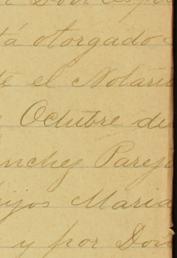 y Don
tá otorgado
te el Notario
Octubre de
nchez Parej
ijos Maria
y por Don